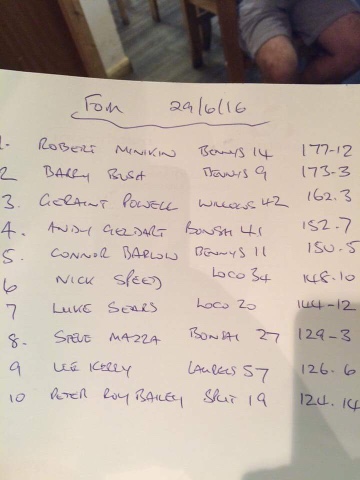 FOM 29/6/16
1. ROBERT MINIKIN BENNYS 14 177-12
2 BARRY BUSH BENNYS 9 173-3
3. GERAINT POWELL WILLOWS 42 162.3
4. ANDY GELDART BONSAI 41 152.7
5. CONNOR BARLOW BENNYS 11 150.5
6 NICK SPEED LOCO 34 148.10
7 LUKE SEARS LOCO 20 144-12
8. STEVE MAZZA BONSAI 27 129-3
9 LEE KERRY LAURELS 57 126.6
10 PETER ROY BAILEY SPLIT 19 124.14